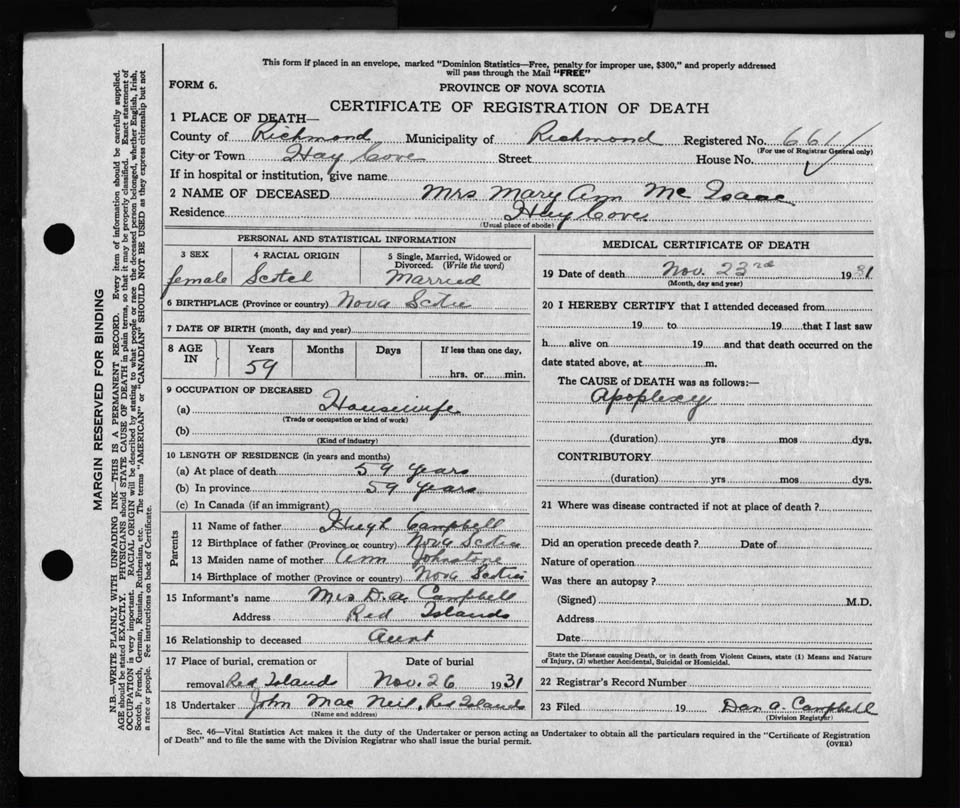 This form if placed in an envelope, marked "Dominion Statistics—Free, penalty for improper use, $300," and properly addressed
will pass through the Mail "FREE"
FORM 6.
PROVINCE OF NOVA SCOTIA
CERTIFICATE OF REGISTRATION OF DEATH
1 PLACE OF DEATH—
County of Richmond Municipality of Richmond Registered No. 661
(For use of Registrar General only)
City or Town Hay Cove Street House No.
If in hospital or institution, give name
2 NAME OF DECEASED Mrs Mary Ann Mc Isaac
Residence Hay Cove
(Usual place of abode)
PERSONAL AND STATISTICAL INFORMATION
3 SEX female
4 RACIAL ORIGIN Scotch
5 Single, Married, Widowed or
Divorced. (Write the word)
Married
6 BIRTHPLACE (Province or country) Nova Scotia
7 DATE OF BIRTH (month, day and year)
8 AGE IN Years Months Days If less than one day,
59 hrs. or min.
9 OCCUPATION OF DECEASED
(a) Housewife
(Trade or occupation or kind of work)
(b)
(Kind of industry)
10 LENGTH OF RESIDENCE (in years and months)
(a) At place of death 59 years
(b) In province 59 years
(c) In Canada (if an immigrant)
Parents
11 Name of father Hugh Campbell
12 Birthplace of father (Province or country) Nova Scotia
13 Maiden name of mother Ann Johnstone
14 Birthplace of mother (Province or country) Nova Scotia
15 Informant's name Mrs D.A. Campbell
Address Red Islands
16 Relationship to deceased Aunt
17 Place of burial, cremation or
removal Red Islands
Date of burial
Nov. 26 1931
18 Undertaker John Mac Neil, Red Islands
(Name and address)
MEDICAL CERTIFICATE OF DEATH
19 Date of death Nov. 23rd 1931
(Month, day and year)
20 I HEREBY CERTIFY that I attended deceased from
19 to 19 that I last saw
h alive on 19 and that death occurred on the
date stated above, at m.
The CAUSE of DEATH was as follows:—
Apoplexy
(duration) yrs mos dys.
CONTRIBUTORY
(duration) yrs mos dys.
21 Where was disease contracted if not at place of death?
Did an operation precede death? Date of
Nature of operation
Was there an autopsy?
(Signed) M.D.
Address
Date
State the Disease causing Death, or in death from Violent Causes, state (1) Means and Nature
of Injury, (2) whether Accidental, Suicidal or Homicidal.
22 Registrar's Record Number
23 Filed 19 Dan A. Campbell
(Division Registrar)
Sec. 46—Vital Statistics Act makes it the duty of the Undertaker or person acting as Undertaker to obtain all the particulars required in the "Certificate of Registration
of Death" and to file the same with the Division Registrar who shall issue the burial permit.
(OVER)
MARGIN RESERVED FOR BINDING
N.B.—WRITE PLAINLY WITH UNFADING INK—THIS IS A PERMANENT RECORD. Every item of information should be carefully supplied.
AGE should be stated EXACTLY. PHYSICIANS should STATE CAUSE OF DEATH in plain terms, so that it may be properly classified. Exact statement of
OCCUPATION is very important. RACIAL ORIGIN will be described by stating to what people or race the deceased person belonged, whether English, Irish,
Scotch, French, German, Russian, Ruthenian, etc. The terms "AMERICAN" or "CANADIAN" SHOULD NOT BE USED as they express citizenship but not
a race or people. Fee instructions on back of Certificate.